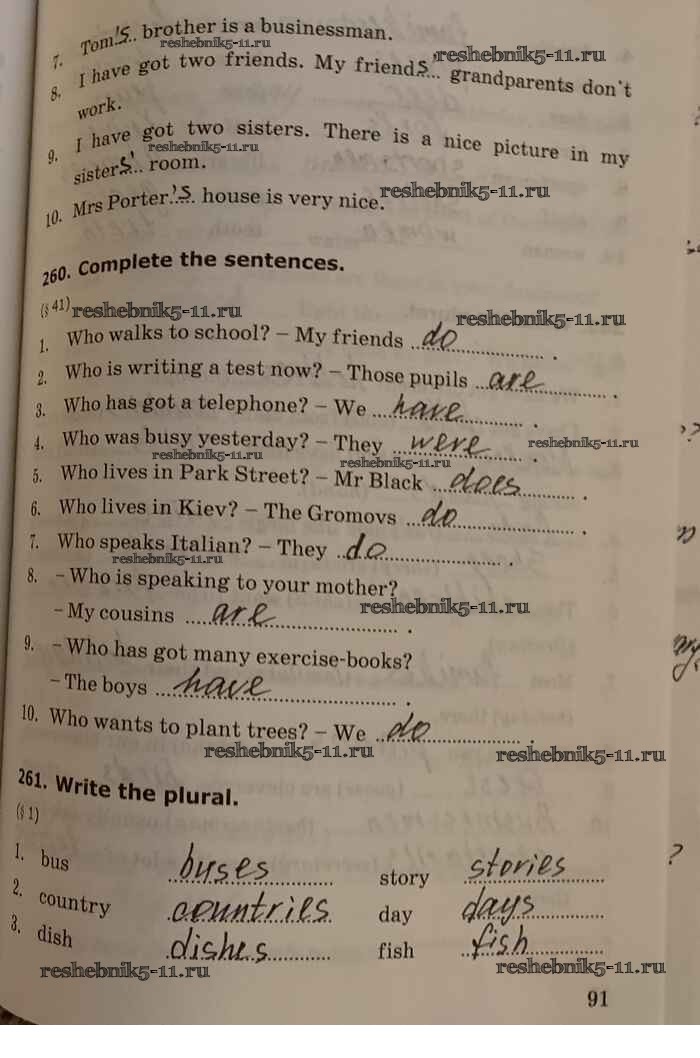 7. Tom.'s.. brother is a businessman.
reshebnik5-11.ru
8. I have got two friends. My friends'... grandparents don't
reshebnik5-11.ru
work.
9. I have got two sisters. There is a nice picture in my
reshebnik5-11.ru
sisters'.. room.
10. Mrs Porter.'s. house is very nice.
reshebnik5-11.ru
260. Complete the sentences.
(§ 41) reshebnik5-11.ru
reshebnik5-11.ru
1. Who walks to school? – My friends ..do.......... .
2. Who is writing a test now? – Those pupils ..are.......... .
3. Who has got a telephone? – We ...have.......... .
4. Who was busy yesterday? – They ...were.......... .
reshebnik5-11.ru
reshebnik5-11.ru reshebnik5-11.ru
5. Who lives in Park Street? – Mr Black ..does.......... .
6. Who lives in Kiev? – The Gromovs ...do.......... .
7. Who speaks Italian? – They ..do.......... .
reshebnik5-11.ru
8. – Who is speaking to your mother?
– My cousins .....are.......... .
reshebnik5-11.ru
9. – Who has got many exercise-books?
– The boys ...have.......... .
10. Who wants to plant trees? – We ..do.......... .
reshebnik5-11.ru reshebnik5-11.ru
261. Write the plural.
(§ 1)
1. bus buses story stories
2. country countries day days
3. dish dishes fish fish
reshebnik5-11.ru reshebnik5-11.ru
91